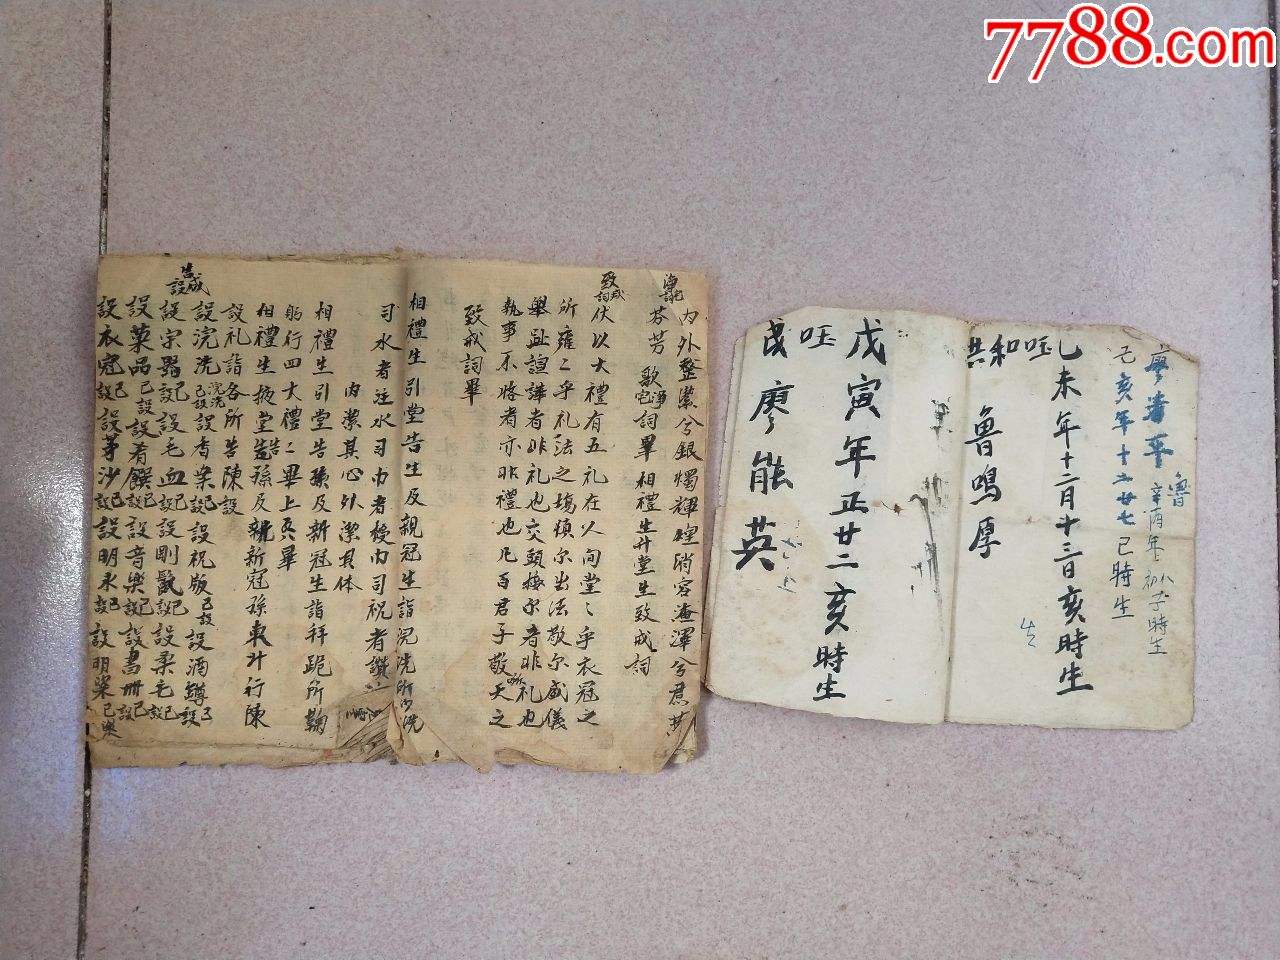 7788.com
內外整肅兮銀燭輝煌消容海渾兮焄
芬芳 歌淨詞畢相禮生升堂生致戒詞
致戒詞
伏以大禮有五礼在人间堂〻乎衣冠之
所雍〻乎礼法之塲慎尔出法敬尔威儀
舉趾諠譁者非礼也交頭接尔者非礼也
執事不恪者亦非禮也凡百君子敬天之
致戒詞畢
相禮生引堂告生及親冠生詣浣洗所浣
司水者注水司巾者授巾司祝者讚
内潔其心外潔其体
相禮生引堂告孫及新冠生詣拜跪所鞠
躬行四大禮〻畢上香畢
相禮生掖堂告孫及新冠孫東升行陳
設礼詣各所告陳設
告成設
設浣洗已設設香案已設設祝版已設設酒罇已設
設宗器已設設毛血已設設剛鬣已設設柔毛已設
設菓品已設設肴饌已設音樂已設設書冊已設
設衣冠已設設茅沙已設設明水已設設明粢已
廖 魯 辛酉年 子時生
己亥年十二廿七巳時生
乙未年十二月十三日亥時生
共和 魯鳴厚
生
戊寅年正廿二亥時生
民 廖能英